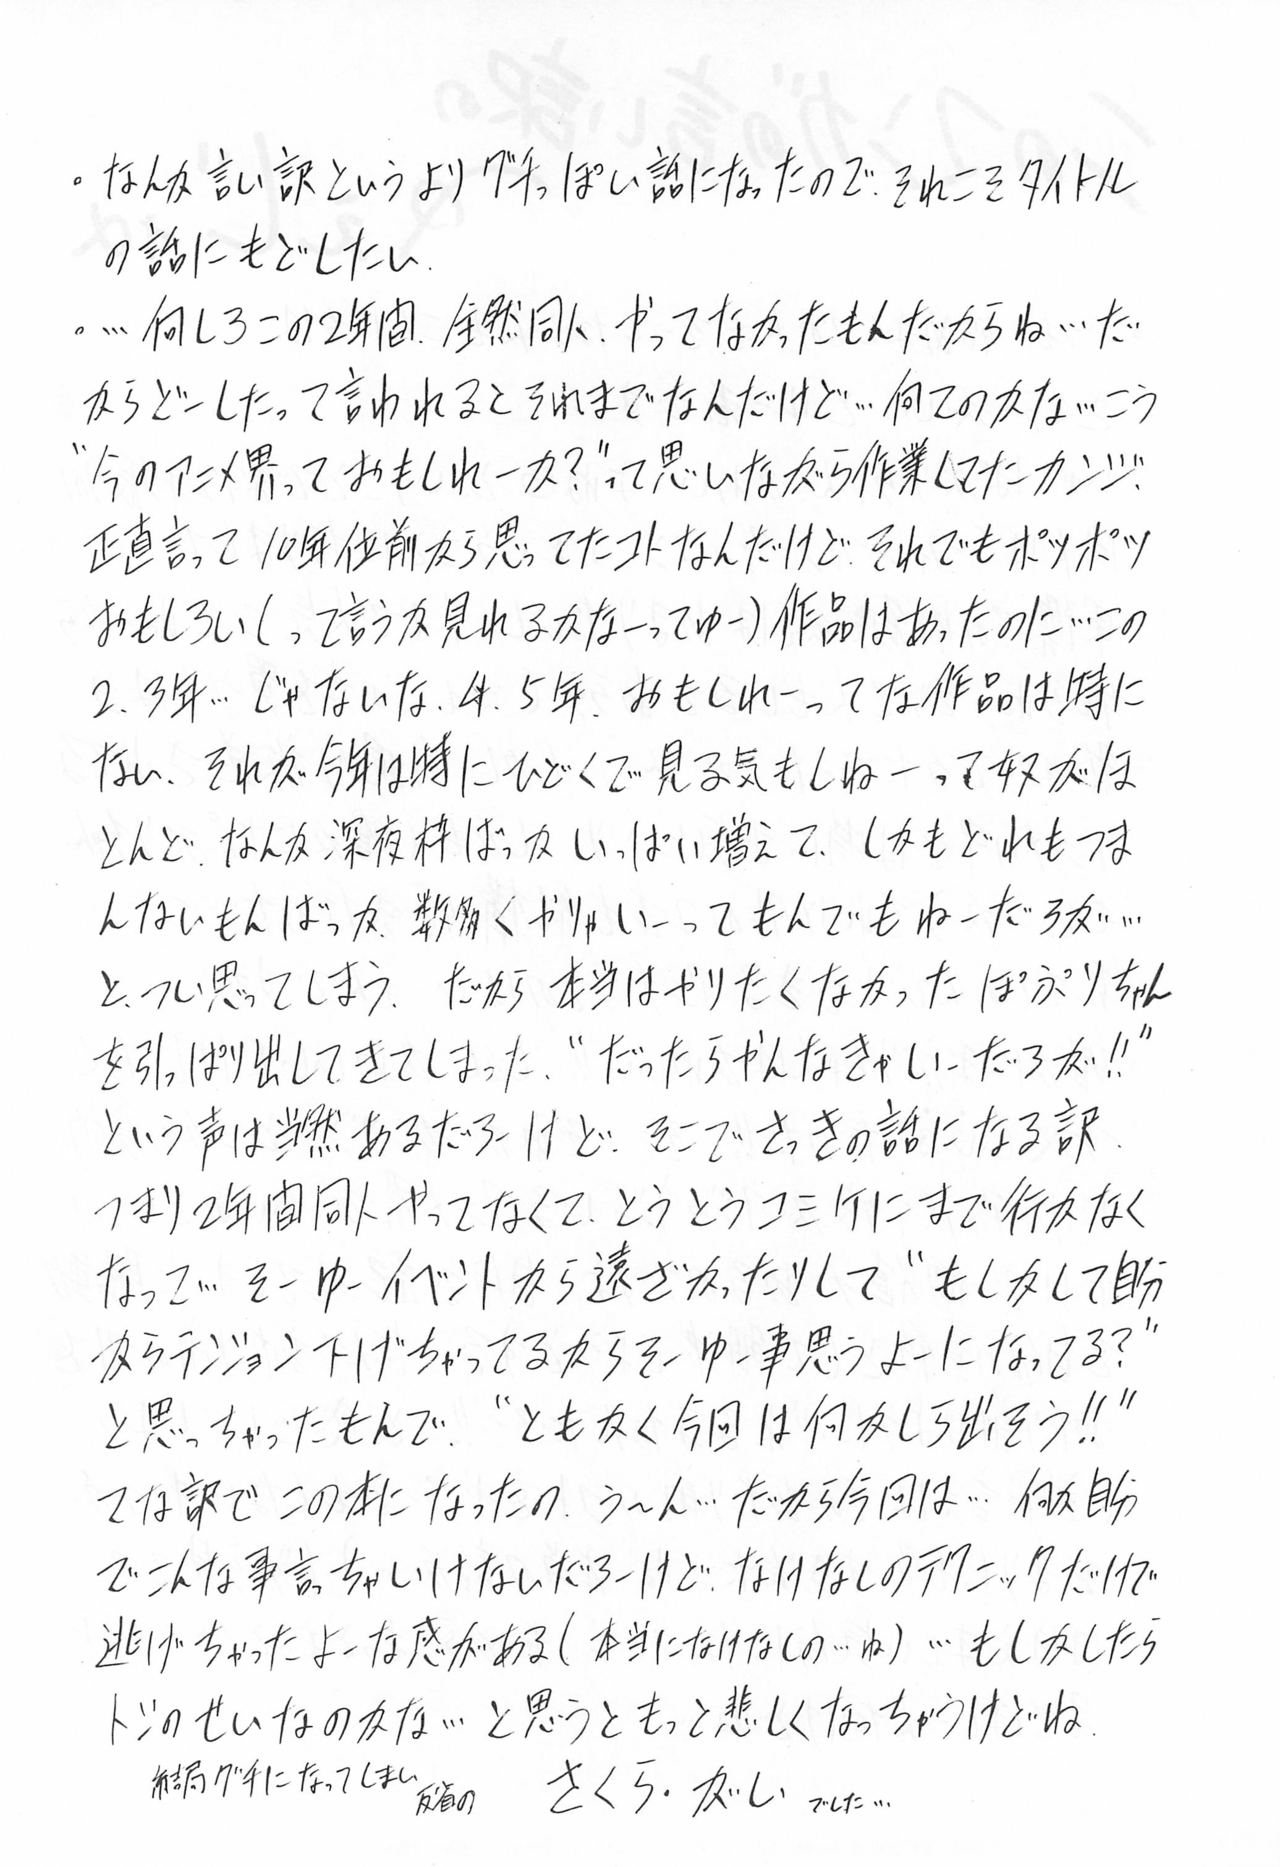 ・なんか言い訳というよりグチっぽい話になったので、それこそタイトル
の話にもどしたい、
・…何しろこの2年間、全然同人、やってなかったもんだからね…だ
からどーしたって言われるとそれまでなんだけど…何てのかな…こう
“今のアニメ界っておもしれーか?”って思いながら作業してたカンジ、
正直言って10年位前から思ってたコトなんだけど、それでもポツポツ
おもしろい(って言うか見れるかなーってゆー)作品はあったのに…この
2、3年…じゃないな、4、5年、おもしれーってな作品は特に
ない、それが今年は特にひどくて見る気もしねーって奴がほ
とんど、なんか深夜枠ばっかいっぱい増えて、しかもどれもつま
んないもんばっか、数多くやりゃいーってもんでもねーだろが…
と、つい思ってしまう、だから本当はやりたくなかったぽぷりちゃん
を引っぱり出してきてしまった、“だったらやんなきゃいーだろが!!”
という声は当然あるだろーけど、そこでさっきの話になる訳、
つまり2年間同人やってなくて、とうとうコミケにまで行かなく
なって…そーゆーイベントから遠ざかったりして“もしかして自分
からテンション下げちゃってるからそーゆー事思うよーになってる?”
と思っちゃったもんで、“ともかく今回は何かしら出そう!!”
てな訳でこの本になったの、う〜ん…だから今回は…何か自分
でこんな事言っちゃいけないだろーけど、なけなしのテクニックだけで
逃げちゃったよーな感がある(本当になけなしの…ね)…もしかしたら
トシのせいなのかな…と思うともっと悲しくなっちゃうけどね、
結局グチになってしまい
反省の さくら・がい でした…